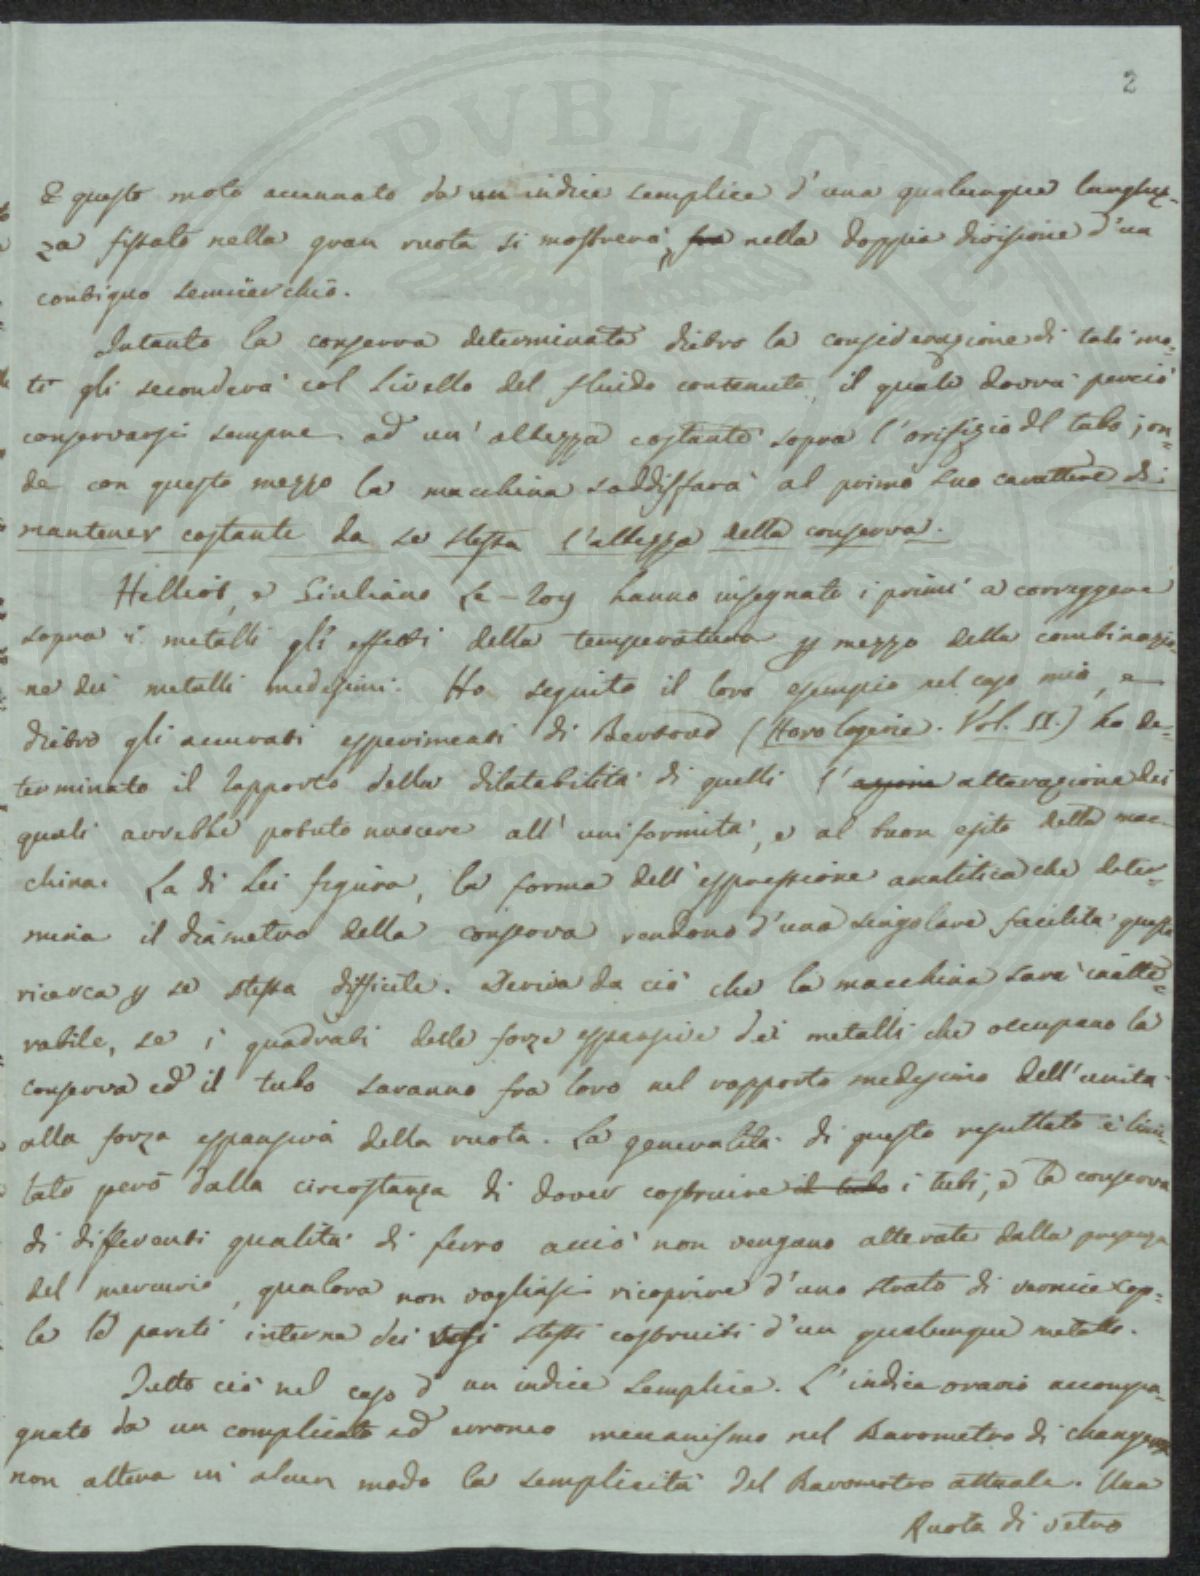 2
E questo moto accennato da un indice semplice d'una qualunque lunghez-
za fissato nella gran ruota si mostrerà, fra nella doppia divisione d'un
contiguo semicerchio.
Intanto la conserva determinata dietro la considerazione di tali mo-
ti gli seconderà col livello del fluido contenuto, il quale dovrà perciò
conservarsi sempre ad un' altezza costante sopra l'orifizio del tubo; on-
de con questo mezzo la macchina soddisfarà al primo suo carattere di
mantener costante da se stessa l'altezza della conserva.
Helliot, e Giuliano Le-Roy hanno insegnato i primi a correggere
sopra i metalli gli effetti della temperatura p mezzo della combinazio-
ne dei metalli medesimi. Ho seguito il loro esempio nel caso mio, e
dietro gli accurati esperimenti di Bertoud (Horologerie. Vol. II.) ho de-
terminato il rapporto della dilatabilità di quelli l' azione alterazione dei
quali avrebbe potuto nuocere all' uniformità, e al buon esito della mac-
china. La di Lei figura, la forma dell' espressione analitica che deter-
mina il diametro della conserva rendono d'una singolare facilità questa
ricerca p se stessa difficile. Deriva da ciò che la macchina sarà inalte-
rabile, se i quadrati delle forze espansive dei metalli che occupano la
conserva ed il tubo saranno fra loro nel rapporto medesimo dell'unità
alla forza espansiva della ruota. La generalità di questo resultato è limi-
tato però dalla circostanza di dover costruire il tubo i tubi, e la conserva
di differenti qualità di ferro acciò non vengano alterate dalla presenza
del mercurio, qualora non vogliasi ricoprire d'uno strato di vernice copa-
le le pareti interne dei stessi costruiti d'un qualunque metallo.
Tutto ciò nel caso d' un indice semplice. L' indice orario accompa-
gnato da un complicato ed erroneo meccanismo nel Barometro di
non altera in alcun modo la semplicità del Barometro attuale. Una
Ruota di vetro